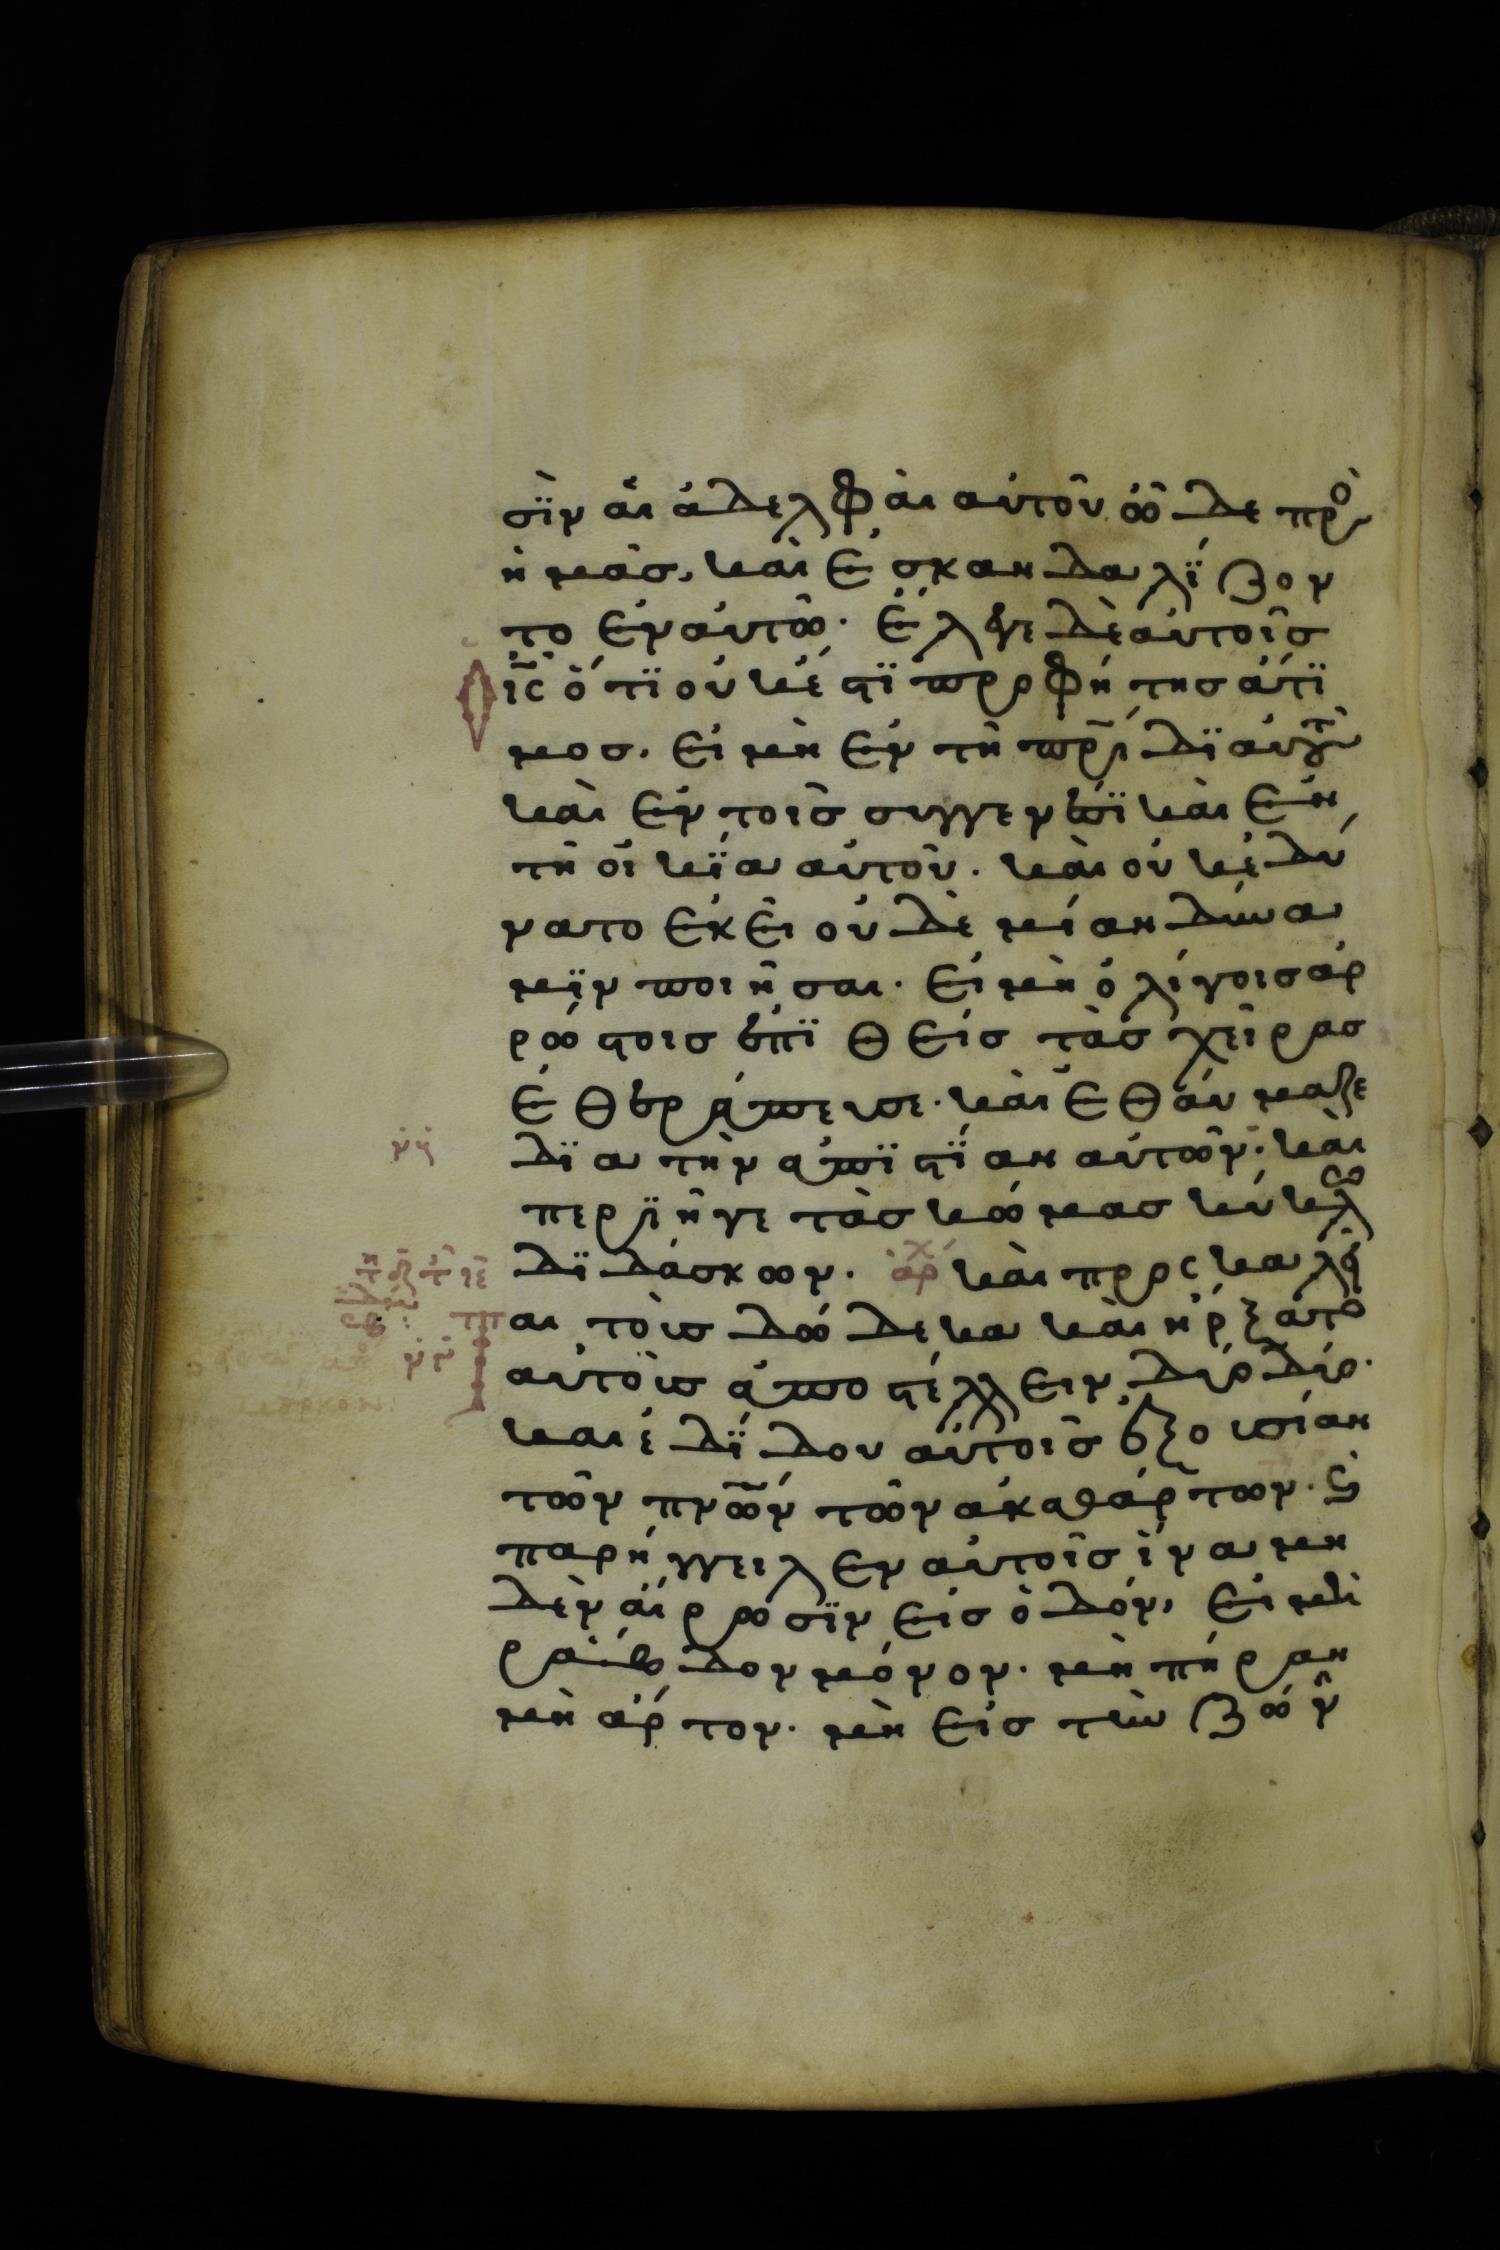 σϊν αἱ ἀδελφὰι αὐτοῦ ὧδε πρὸς
ἡμᾶσ, καὶ ἐσκανδαλΐζον
το ἐν αὐτῶ· ἔλεγε δὲ αὐτοῖσ
ὁ ις ὅτϊ οὐκ ἔστϊ προφήτησ ἄτϊ
μοσ. εἰ μὴ ἐν τῆ πρίδϊ αὐτοῦ
καὶ ἐν τοῖσ συγγενέσϊ καὶ ἐν
τῆ οἰκΐα αὐτοῦ. καὶ οὐκ ἐδύ
νατο ἐκεῖ οὐδὲ μίαν δύνα
μϊν ποιῆσαι. εἰ μὴ ὀλίγοισ ἀρ
ρώστοισ ἐπϊθεὶσ τὰσ χεῖρασ
ἐθεράπευσε. καὶ ἐθαύμαζε
δϊα τὴν ἀπϊστΐαν αὐτῶν. καὶ
περϊῆγε τὰσ κώμασ κύκλω
δϊδάσκων. ἀρχ καὶ προςκαλεῖ
ται τοὺσ δώδεκα καὶ ἤρξατο
αὐτοὺσ ἀποστέλλειν δύο δύο.
καὶ ἐδΐδου αὐτοῖσ ἐξουσίαν
τῶν πνων τῶν ἀκαθάρτων. ϗ
παρήγγειλεν αὐτοῖσ ἵνα μη
δὲν αἴρωσϊν εἰσ ὁδόν, εἰ μὴ
ράβδον μόνον. μὴ πήραν
μὴ ἄρτον. μὴ εἰσ τὴν ζών